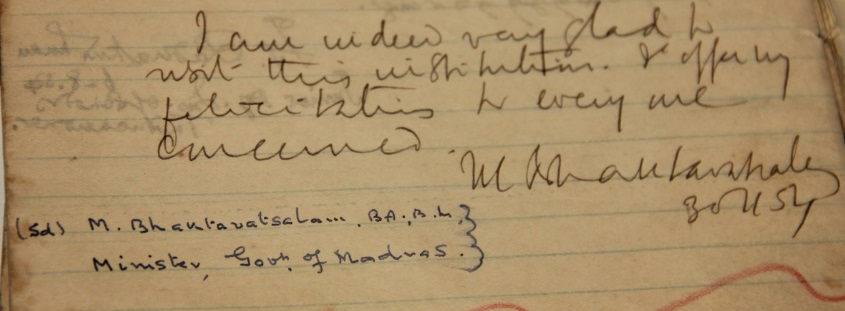 I am indeed very glad to
visit this institution. I offer my
felicitations to every one
concerned.
M Bhaktavatsalam
(Sd) M. Bhaktavatsalam, B.A., B.L.,
Minister, Govt. of Madras.